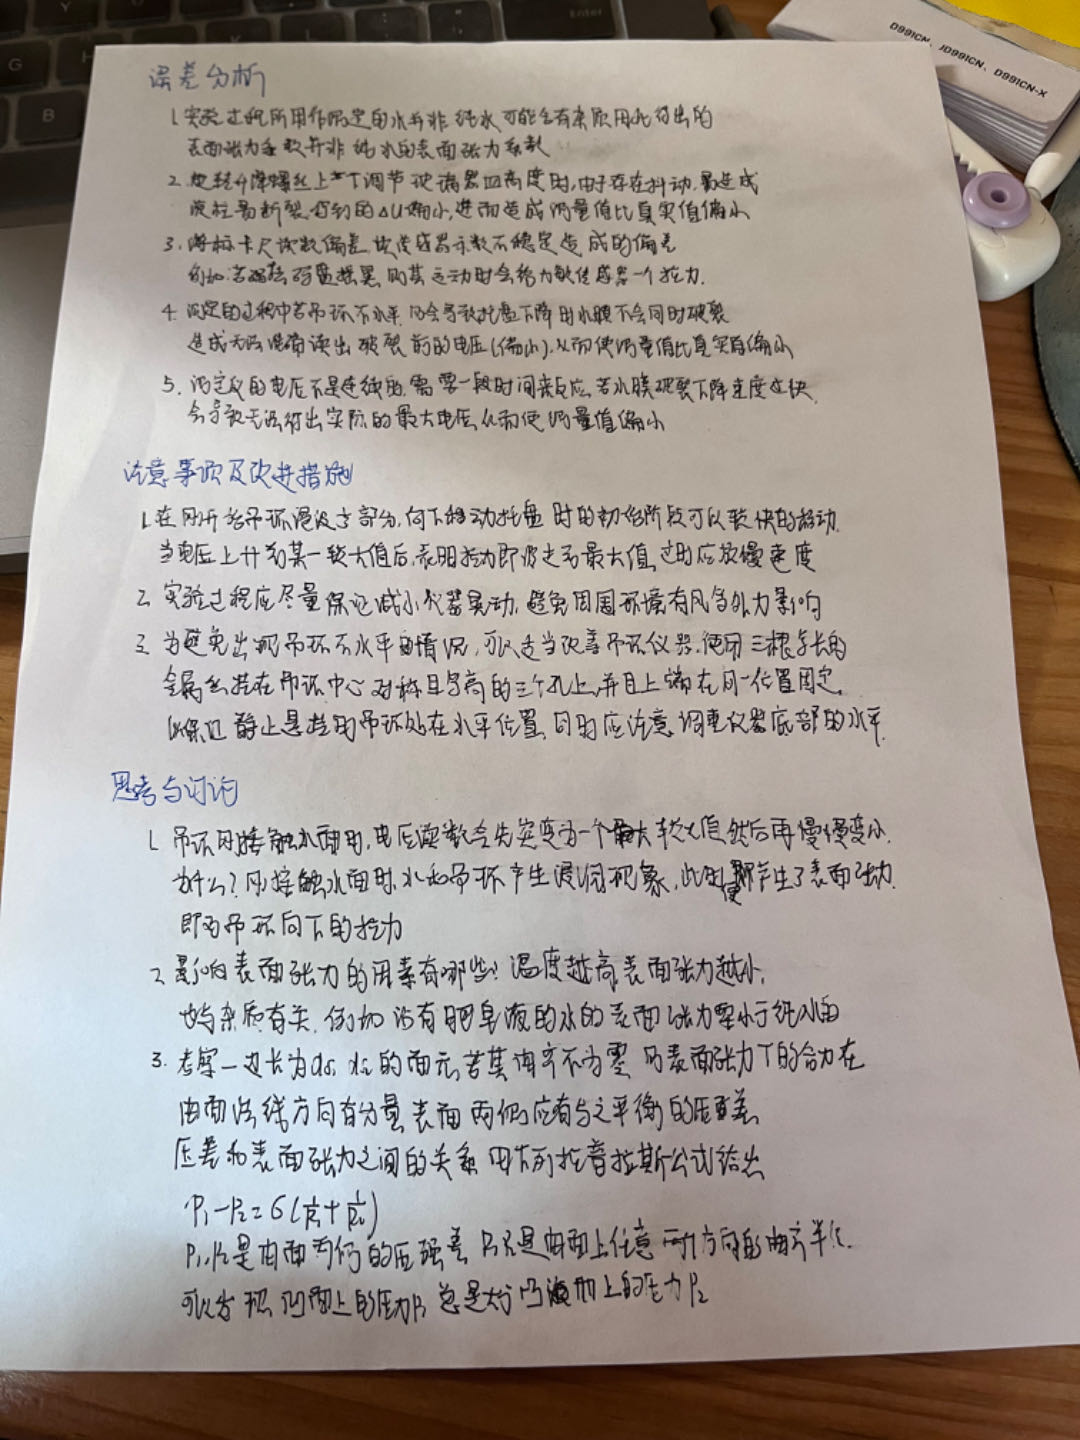 D991CN、JD991CN、D991CN-X
Enter
G
B
误差分析
1.实验过程所用作测定的水并非纯水可能含有杂质因此得出的
表面张力系数并非纯水的表面张力系数
2.旋转升降螺丝上下调节玻璃器皿高度时,由于存在抖动,易造成
液柱易断裂,得到的ΔU偏小,进而造成测量值比真实值偏小
3.游标卡尺读数偏差,传感器示数不稳定造成的偏差
例如:若砝码盘摇晃,则其运动时会给力敏传感器一个拉力.
4.测定的过程中若吊环不水平,会导致托盘下降时水膜不会同时破裂
造成无法准确读出破裂前的电压(偏小),从而使测量值比真实值偏小
5.测定仪的电压不是连续的,需要一段时间来反应,若水膜破裂下降速度过快,
会导致无法得出实际的最大电压从而使测量值偏小
注意事项及改进措施
1.在刚开始吊环浸没了部分,向下移动托盘时的初始阶段可以较快的移动.
当电压上升到某一较大值后,表明拉力即将达到最大值,这时应放慢速度
2.实验过程应尽量保证减小仪器晃动,避免周围环境有风等外力影响
3.为避免出现吊环不水平的情况,可以适当改善吊环仪器,使用三根等长的
金属丝挂在吊环中心对称且等高的三个孔上,并且上端在同一位置固定,
以保证静止悬挂的吊环处在水平位置,同时应注意调整仪器底部的水平.
思考与讨论
1.吊环刚接触水面时,电压读数会先突变为一个较大值然后再慢慢变小.
为什么?刚接触水面时,水和吊环产生浸润现象,此时便产生了表面张力.
即为吊环向下的拉力
2.影响表面张力的因素有哪些?温度越高,表面张力越小,
也与杂质有关.例如 沾有肥皂液的水的表面张力要小于纯水的
3.考察一边长为ds₁ ds₂的面元,若其曲率不为零 则表面张力T的合力在
曲面法线方向有分量,表面两侧应有与之平衡的压强差
压差和表面张力之间的关系用下列拉普拉斯公式给出
P₁-P₂=σ(1/R₁+1/R₂)
P₁,P₂是曲面两侧的压强差 R₁R₂是曲面上任意两个方向的曲率半径.
可以发现 凹面上的压力P₁总是大于凸液面上的压力P₂